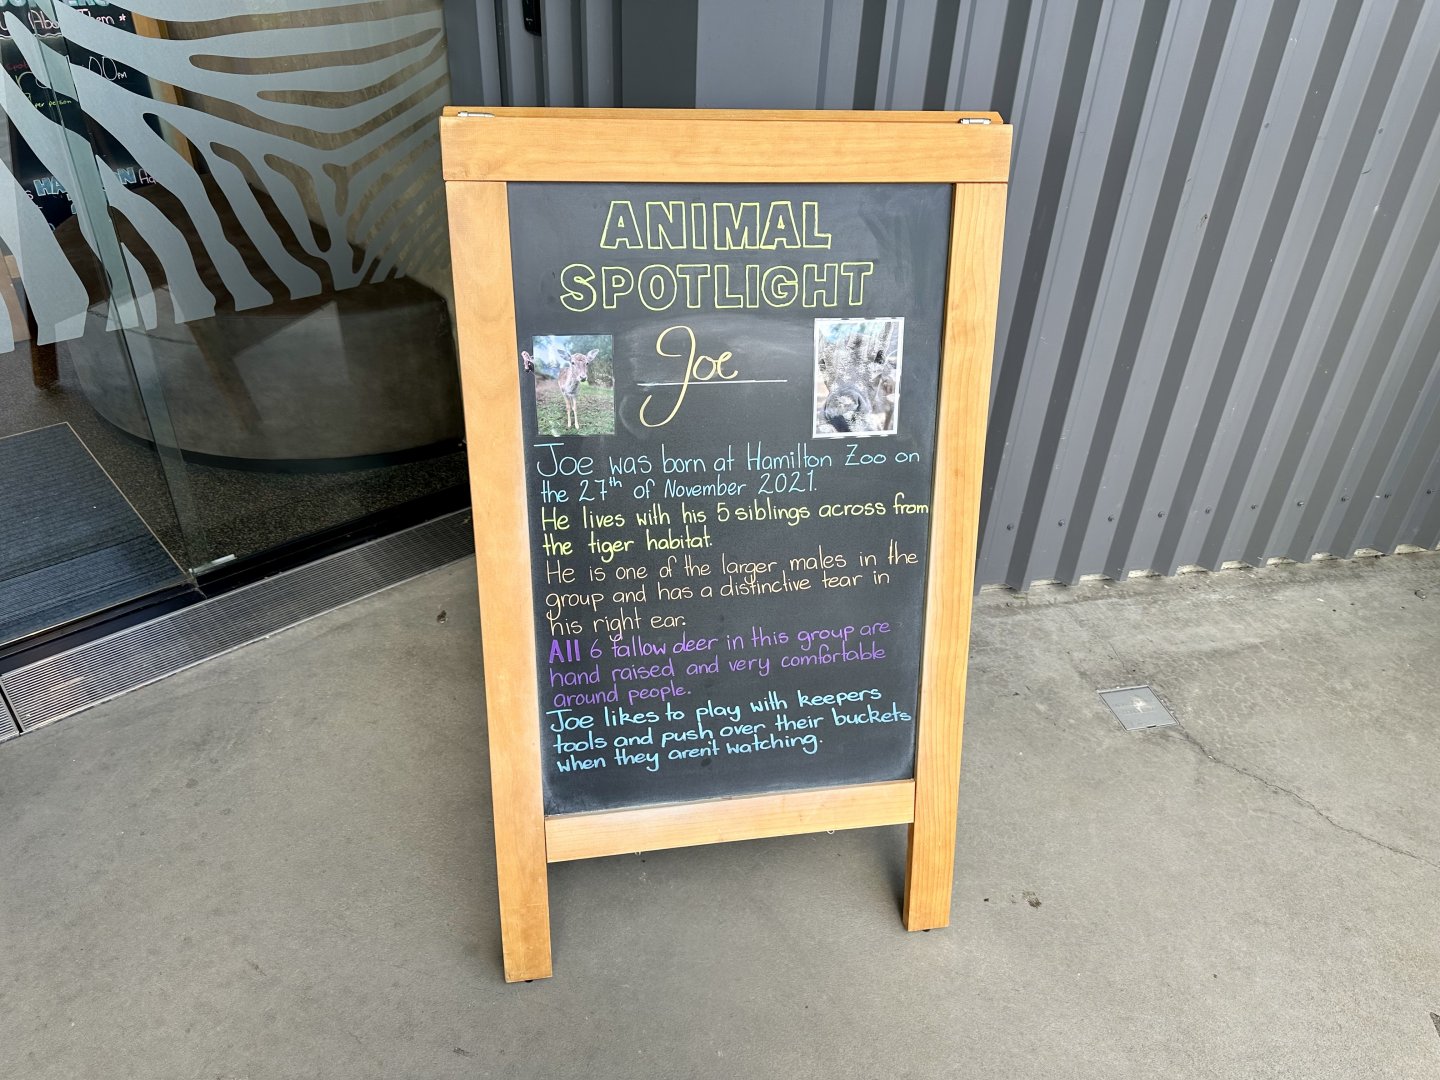 (About Them *
00PM
per person
ANIMAL
SPOTLIGHT
Joe
Joe was born at Hamilton Zoo on
the 27th of November 2021.
He lives with his 5 siblings across from
the tiger habitat.
He is one of the larger males in the
group and has a distinctive tear in
his right ear.
All 6 fallow deer in this group are
hand raised and very comfortable
around people.
Joe likes to play with keepers
tools and push over their buckets
when they aren't watching.